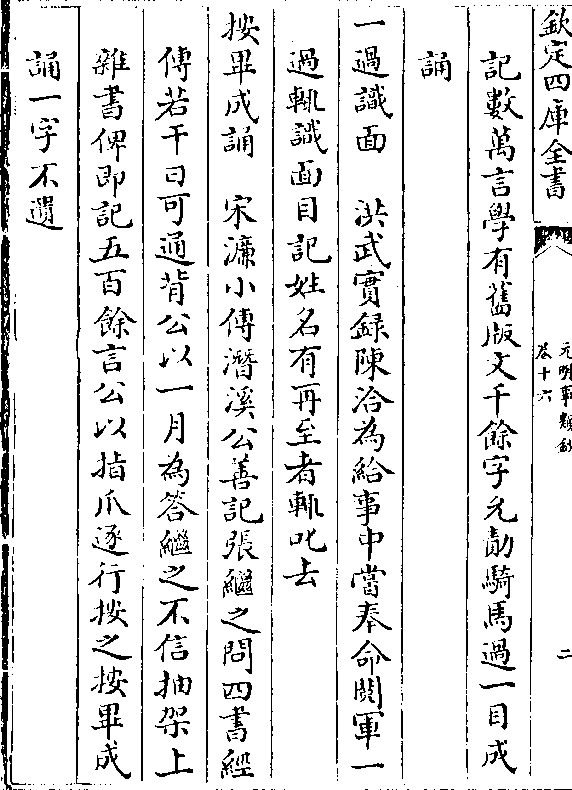 欽定四庫全書
元明事類鈔
卷十六
二
記數萬言學有舊版文千餘字允勣騎馬過一目成
誦
一過識面　洪武實録陳洽為給事中嘗奉命閱軍一
過輒識面目記姓名有再至者輒叱去
按畢成誦　宋濂小傳潛溪公善記張繼之問四書經
傳若干日可通背公以一月為答繼之不信抽架上
雜書俾即記五百餘言公以指爪逐行按之按畢成
誦一字不遺